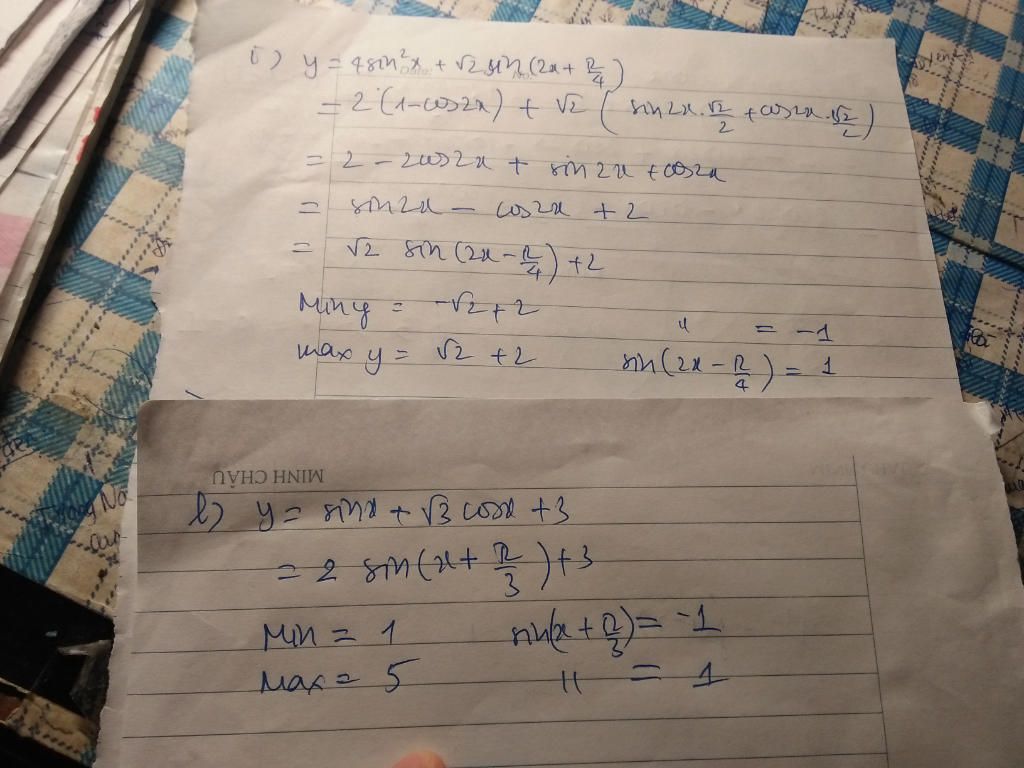 б) y = 4sin²x + √2 sin(2x + π/4)
= 2(1-cos2x) + √2 (sin2x.√2/2 + cos2x.√2/2)
= 2 - 2cos2x + sin2x + cos2x
= sin2x - cos2x + 2
= √2 sin(2x - π/4) + 2
Min y = -√2 + 2 " = -1
max y = √2 + 2 sin(2x - π/4) = 1
MINH CHÂU
l) y = sinx + √3 cosx + 3
= 2 sin(x + π/3) + 3
Min = 1 sin(x + π/3) = -1
Max = 5 " = 1